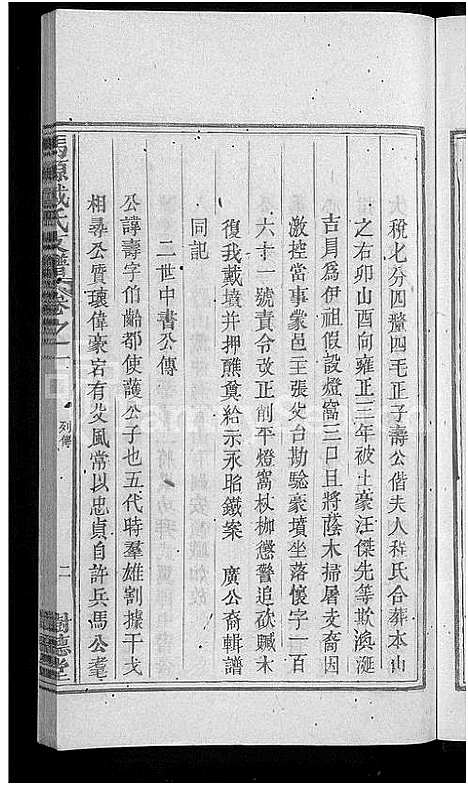 大稅七分四釐四毛正子壽公偕夫人程氏合葬本山
之右卯山酉向雍正三年被土豪汪傑先等欺渙涎
吉冐爲伊祖假設燈窩三口且將蔭木掃屠支裔因
激控當事蒙邑主張父台勘驗豪墳坐落懷字一百
六十一號責令改正削平燈窩杖枷懲警追砍贓木
復我戴墳并押醮奠給示永貽鐵案 廣公裔輯譜
同記
二世中書公傳
公諱壽字伯齡都使護公子也五代時羣雄割據干戈
相尋公質瓌偉豪宕有父風常以忠貞自許兵馬公耄
馬源戴氏支譜 卷之一 列傳 二 樹德堂